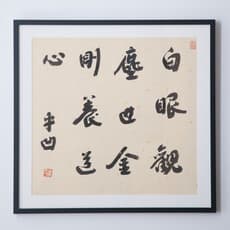 白眼觀
塵世金
剛養道
心
平凹